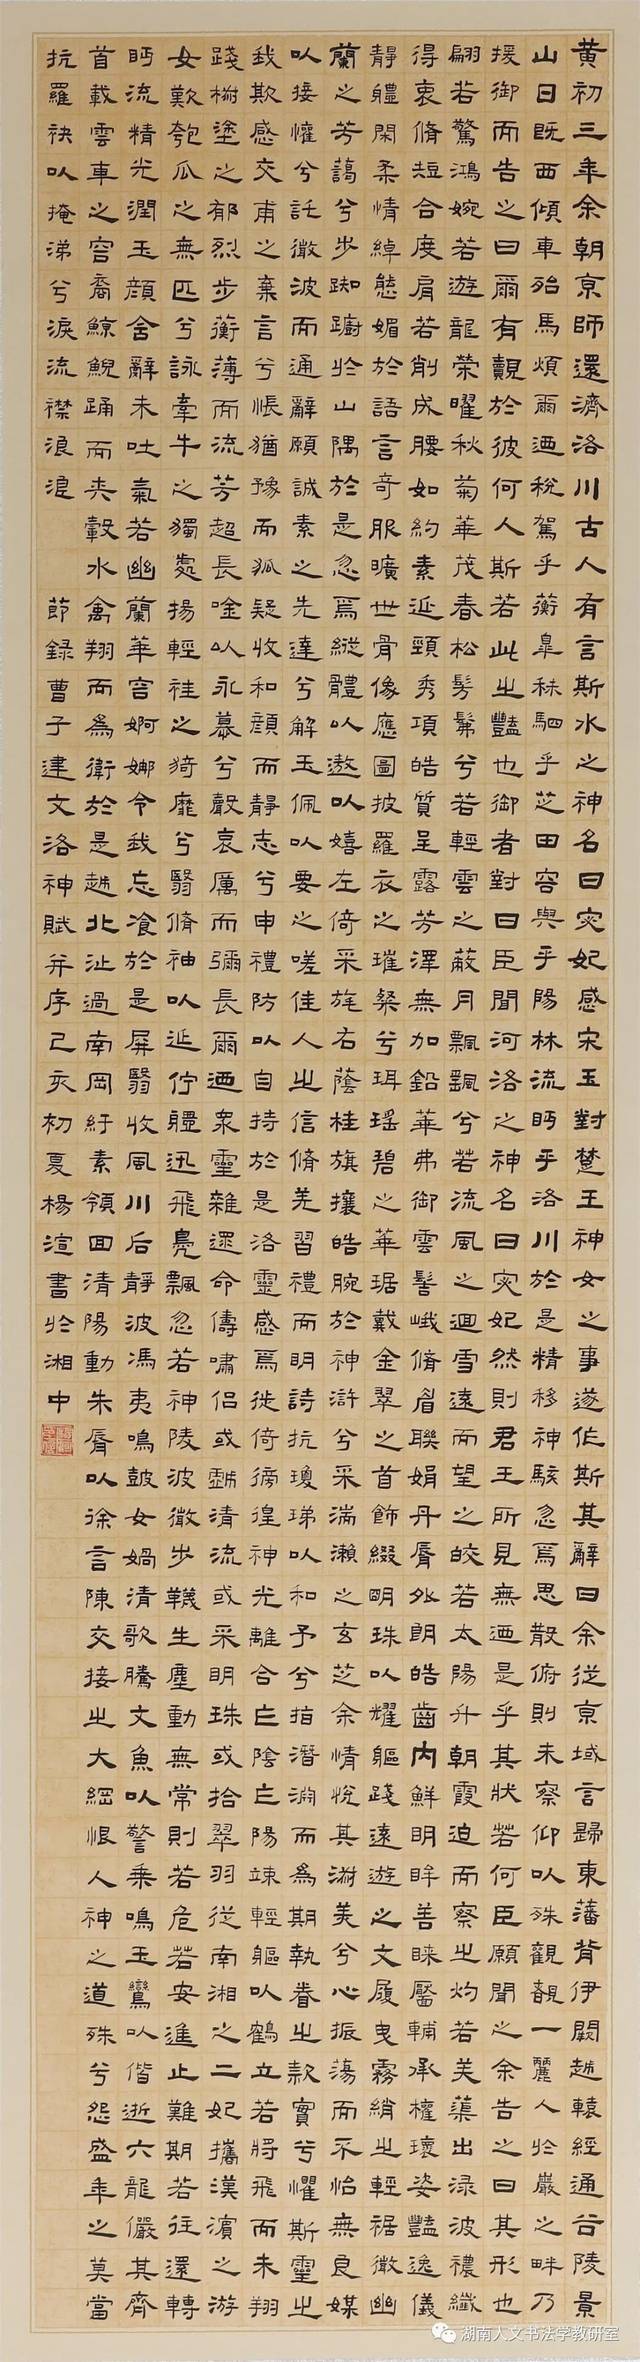 黄初三年余朝京師還濟洛川古人有言斯水之神名曰宓妃感宋玉對楚王神女之事遂作斯其辭曰余從京域言歸東藩背伊闕越轅經通谷陵景
山日既西傾車殆馬煩爾迺稅駕乎蘅皋秣駟乎芝田容與乎陽林流眄乎洛川於是精移神駭忽焉思散俯則未察仰以殊觀覩一麗人於巖之畔乃
援御而告之曰爾有覿於彼何人斯若此之豔也御者對曰臣聞河洛之神名曰宓妃然則君王所見無迺是乎其狀若何臣願聞之余告之曰其形也
翩若驚鴻婉若遊龍榮曜秋菊華茂春松髣髴兮若輕雲之蔽月飄颻兮若流風之迴雪遠而望之皎若太陽升朝霞迫而察之灼若芙蕖出淥波襛纖
得衷脩短合度肩若削成腰如約素延頸秀項皓質呈露芳澤無加鉛華弗御雲髻峨脩眉聯娟丹脣外朗皓齒内鮮明眸善睞靨輔承權瓌姿豔逸儀
靜體閑柔情綽態媚於語言奇服曠世骨像應圖披羅衣之璀粲兮珥瑤碧之華琚戴金翠之首飾綴明珠以耀軀踐遠遊之文履曳霧綃之輕裾微幽
蘭之芳藹兮步踟躕於山隅於是忽焉縱體以遨以嬉左倚采旄右蔭桂旗攘皓腕於神滸兮采湍瀨之玄芝余情悅其淑美兮心振蕩而不怡無良媒
以接懽兮託微波而通辭願誠素之先達兮解玉佩以要之嗟佳人之信脩羌習禮而明詩抗瓊珶以和予兮指潛淵而爲期執眷之款實兮懼斯靈之
我欺感交甫之棄言兮悵猶豫而狐疑收和顏而靜志兮申禮防以自持於是洛靈感焉徙倚徬徨神光離合乍陰乍陽竦輕軀以鶴立若將飛而未翔
踐椒塗之郁烈步蘅薄而流芳超長吟以永慕兮聲哀厲而彌長爾迺衆靈雜遝命儔嘯侶或戲清流或采明珠或拾翠羽從南湘之二妃攜漢濱之游
女歎匏瓜之無匹兮詠牽牛之獨處揚輕袿之猗靡兮翳脩袖以延佇體迅飛鳧飄忽若神陵波微步韈生塵動無常則若危若安進止難期若往還轉
眄流精光潤玉顏含辭未吐氣若幽蘭華容婀娜令我忘飡於是屏翳收風川后靜波馮夷鳴鼓女媧清歌騰文魚以警乘鳴玉鸞以偕逝六龍儼其齊
首載雲車之容裔鯨鯢踊而夾轂水禽翔而爲衛於是越北沚過南岡紆素領迴清陽動朱脣以徐言陳交接之大綱恨人神之道殊兮怨盛年之莫當
抗羅袂以掩涕兮淚流襟浪浪 節錄曹子建文洛神賦并序己亥初夏楊渲書於湘中
湖南人文书法学教研室